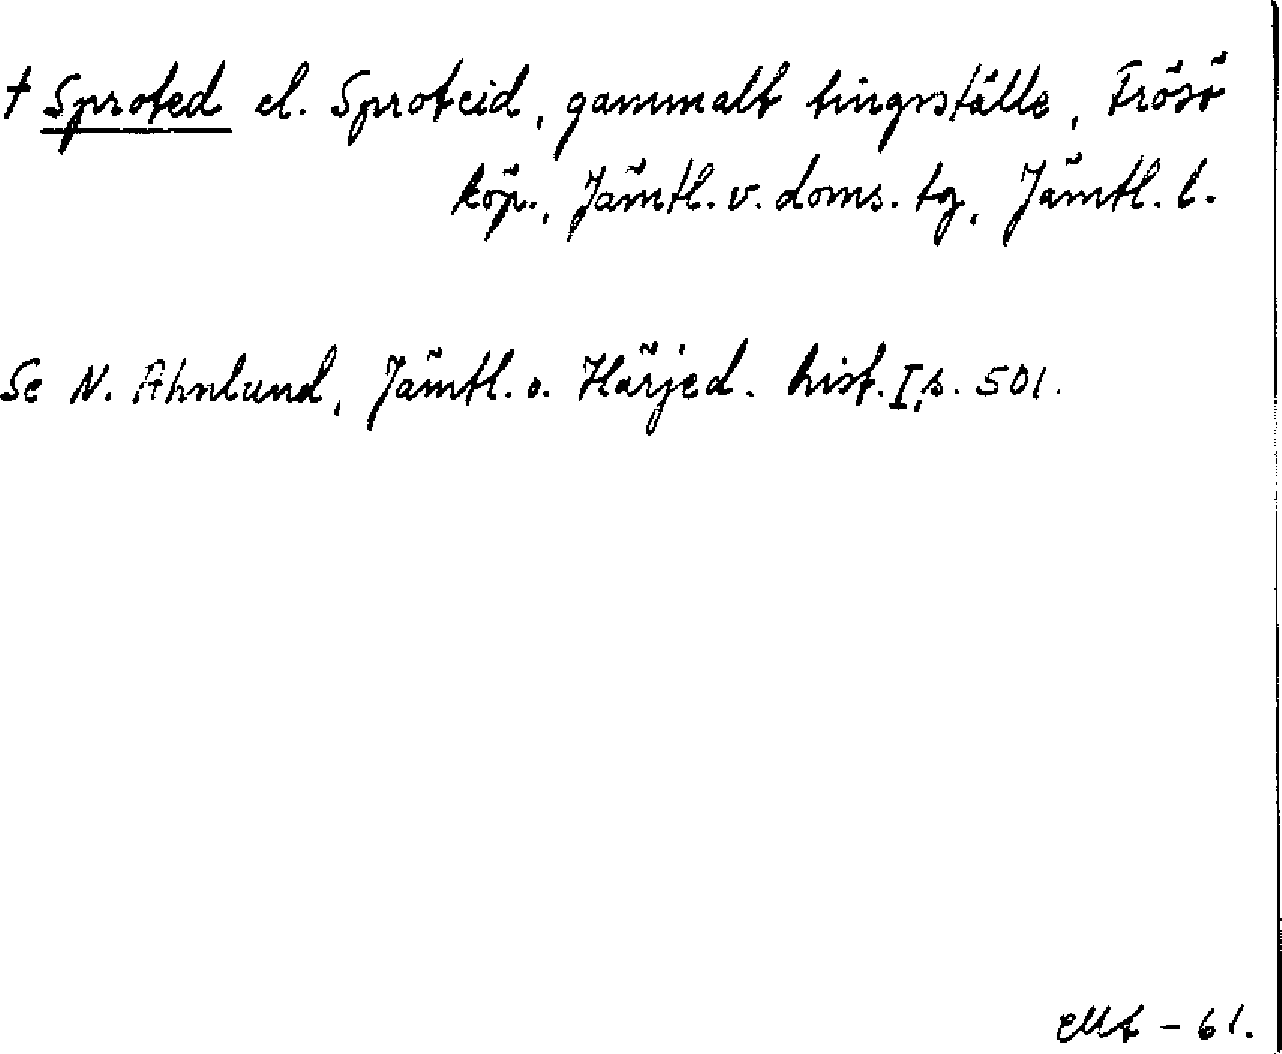 † Sproted el. Sproteid, gammalt tingsställe, Frösö
köp., Jämtl. v. doms. tg, Jämtl. l.
Se N. Ahnlund, Jämtl. o. Härjed. hist. I, s. 501.
- 61.